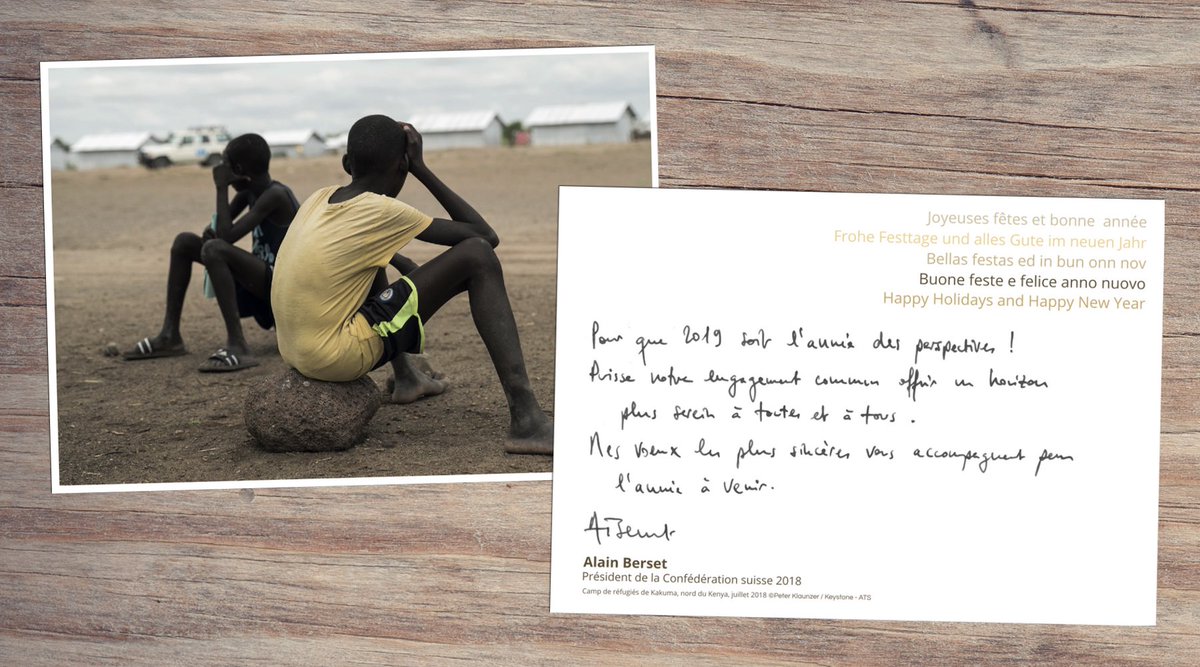 Joyeuses fêtes et bonne année
Frohe Festtage und alles Gute im neuen Jahr
Bellas festas ed in bun onn nov
Buone feste e felice anno nuovo
Happy Holidays and Happy New Year
Pour que 2019 soit l'année des perspectives !
Puisse notre engagement commun offrir un horizon
plus serein à toutes et à tous .
Mes vœux les plus sincères vous accompagnent pour
l'année à venir.
ABerset
Alain Berset
Président de la Confédération suisse 2018
Camp de réfugiés de Kakuma, nord du Kenya, juillet 2018 ©Peter Klaunzer / Keystone - ATS